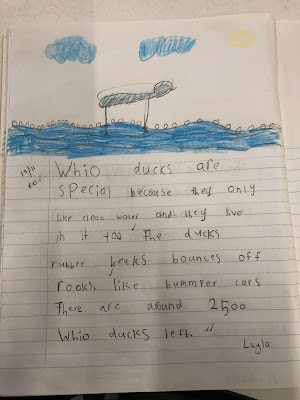 14/11
Whio ducks are
special because they only
like clean water and they live
in it too The ducks
rubber beaks bounces off
rocks, like bummper cars
There are around 2500
Whio ducks left.
Layla